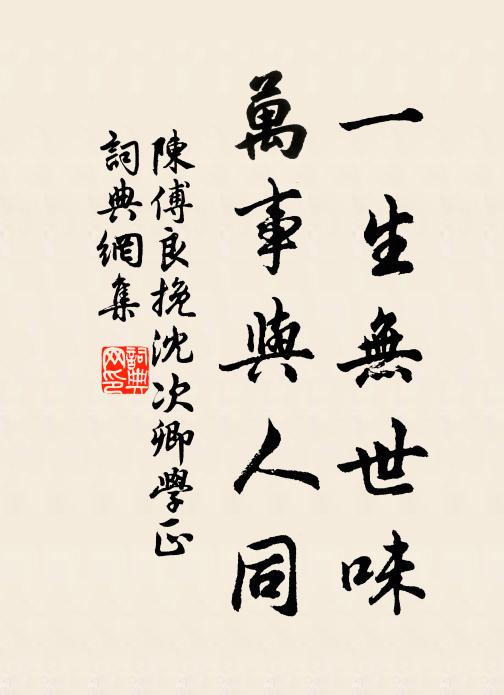 一生無世味
萬事與人同
陳傅良挽沈次卿學正
詞典網集
詞典网印